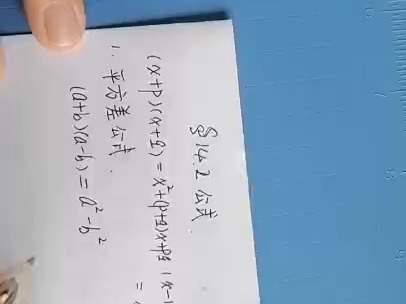 §14.2 公式.
(x+p)(x+q)=x²+(p+q)x+pq (x-1
=
1. 平方差公式.
(a+b)(a-b)=a²-b²